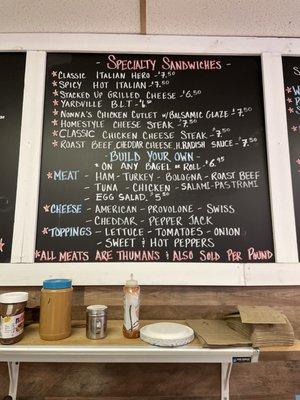 - Specialty Sandwiches -
* Classic Italian Hero - $7.50
* Spicy Hot Italian - $7.50
* Stacked Up Grilled Cheese - $6.50
* Yardville B.L.T -
* Nonna's Chicken Cutlet w/ Balsamic Glaze $7.50
* Homestyle Cheese Steak - $7.50
* Classic Chicken Cheese Steak - $7.50
* Roast Beef, Cheddar Cheese, H. Radish Sauce - $7.50
Build Your Own -
* On Any Bagel or Roll $6.95
* Meat - Ham - Turkey - Bologna - Roast Beef
Tuna - Chicken - Salami - Pastrami
- Egg Salad $5.50
* Cheese - American - Provolone - Swiss
Cheddar - Pepper Jack
* Toppings - Lettuce - Tomatoes - Onion
- Sweet & Hot Peppers
* All Meats are Thumans & Also Sold Per Pound